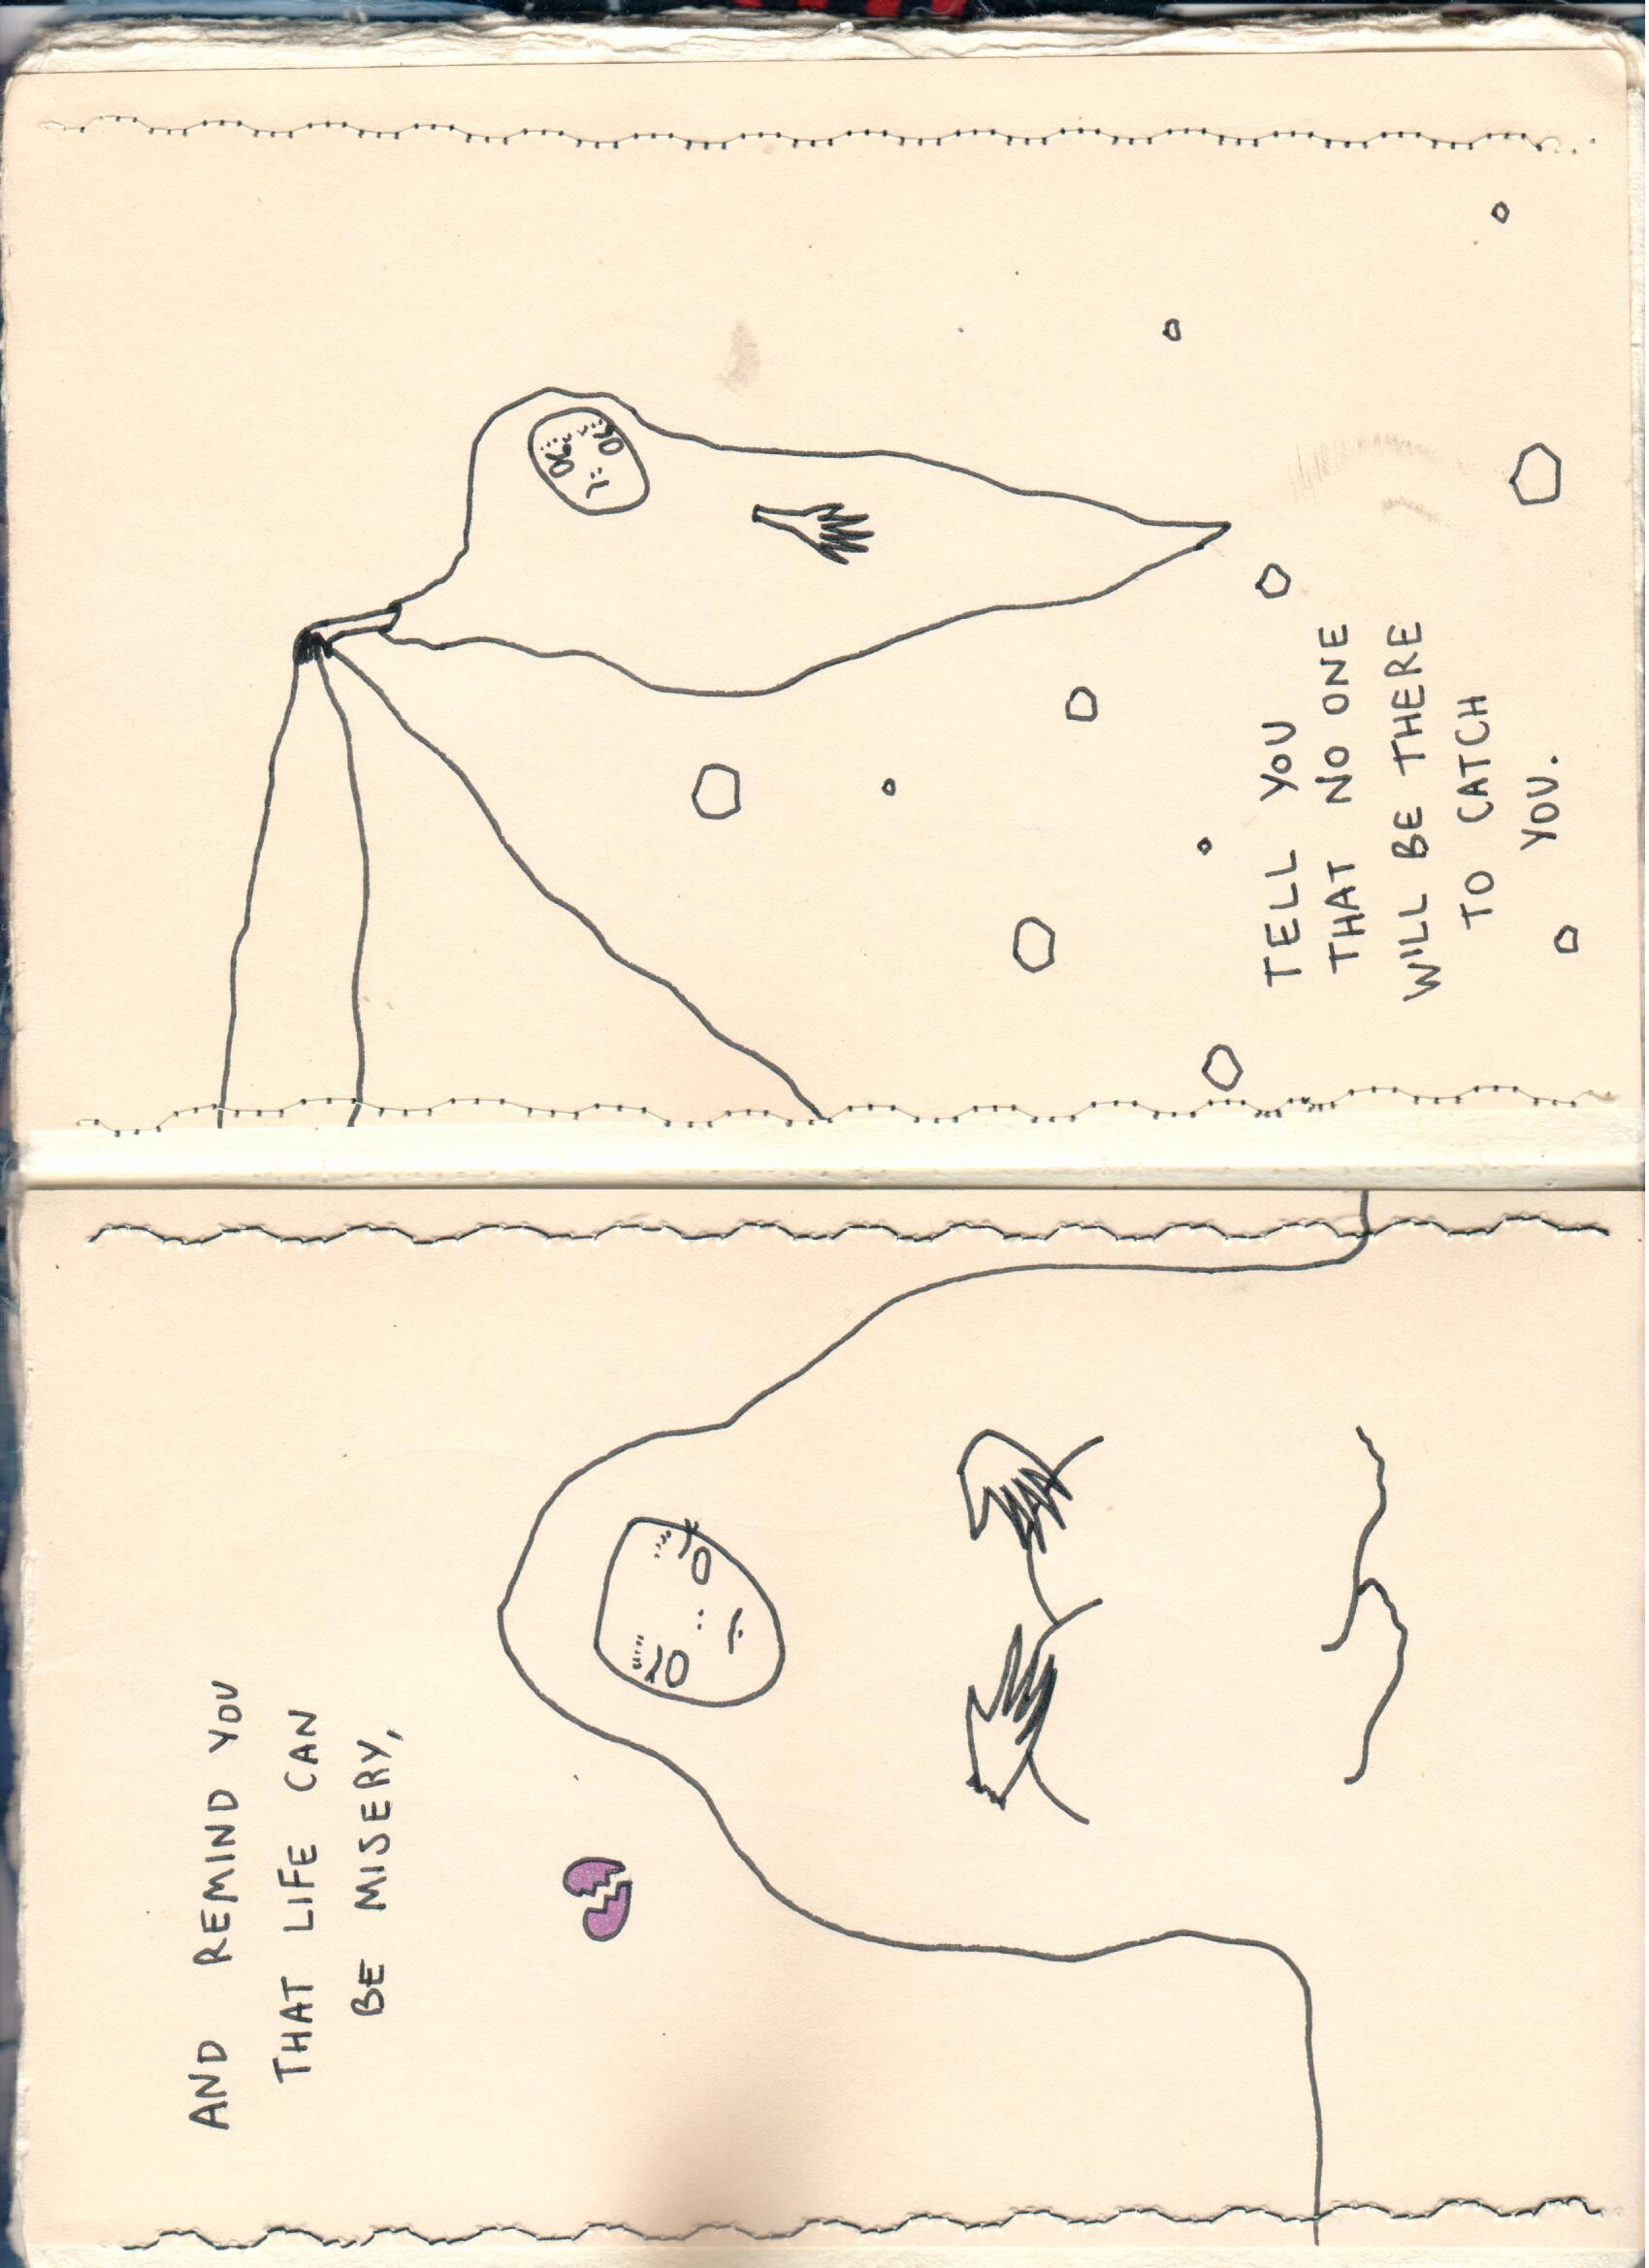 AND REMIND YOU
THAT LIFE CAN
BE MISERY,
TELL YOU
THAT NO ONE
WILL BE THERE
TO CATCH
YOU.